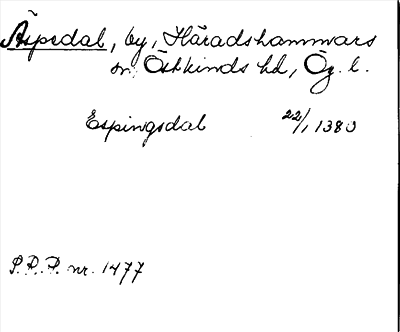 Äspedal, by, Häradshammars
sn, Östkinds hd, Ög. l.
Espingsdal 22/1 1380
P.R.P. nr. 1477